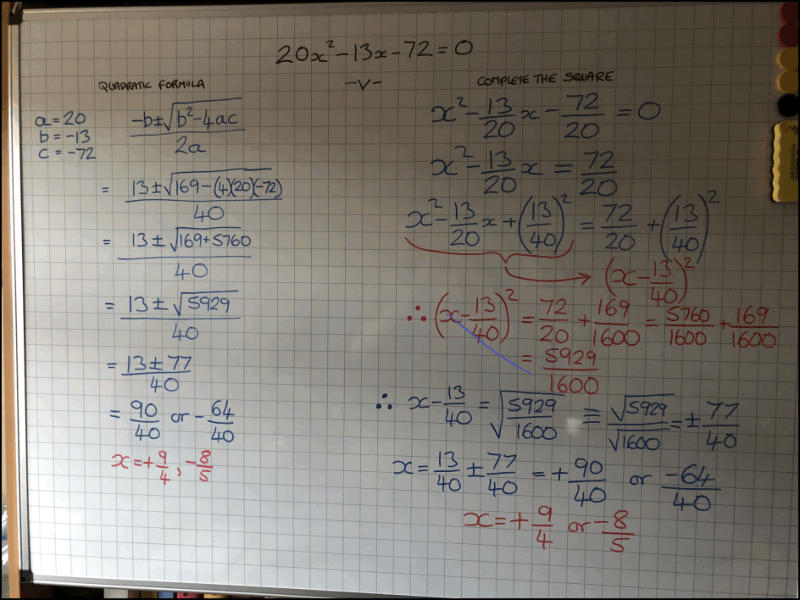 20x² - 13x - 72 = 0
QUADRATIC FORMULA
a = 20
b = -13
c = -72
-b±√(b²-4ac) / 2a
= 13 ± √(169-(4)(20)(-72)) / 40
= 13 ± √(169+5760) / 40
= 13 ± √5929 / 40
= 13 ± 77 / 40
= 90/40 or -64/40
x = +9/4, -8/5
-V-
COMPLETE THE SQUARE
x² - 13/20 x - 72/20 = 0
x² - 13/20 x = 72/20
x² - 13/20 x + (13/40)² = 72/20 + (13/40)²
(x - 13/40)²
∴ (x - 13/40)² = 72/20 + 169/1600 = 5760/1600 + 169/1600
= 5929/1600
∴ x - 13/40 = √(5929/1600) ≡ √5929/√1600 = ± 77/40
x = 13/40 ± 77/40 = + 90/40 or -64/40
x = + 9/4 or -8/5